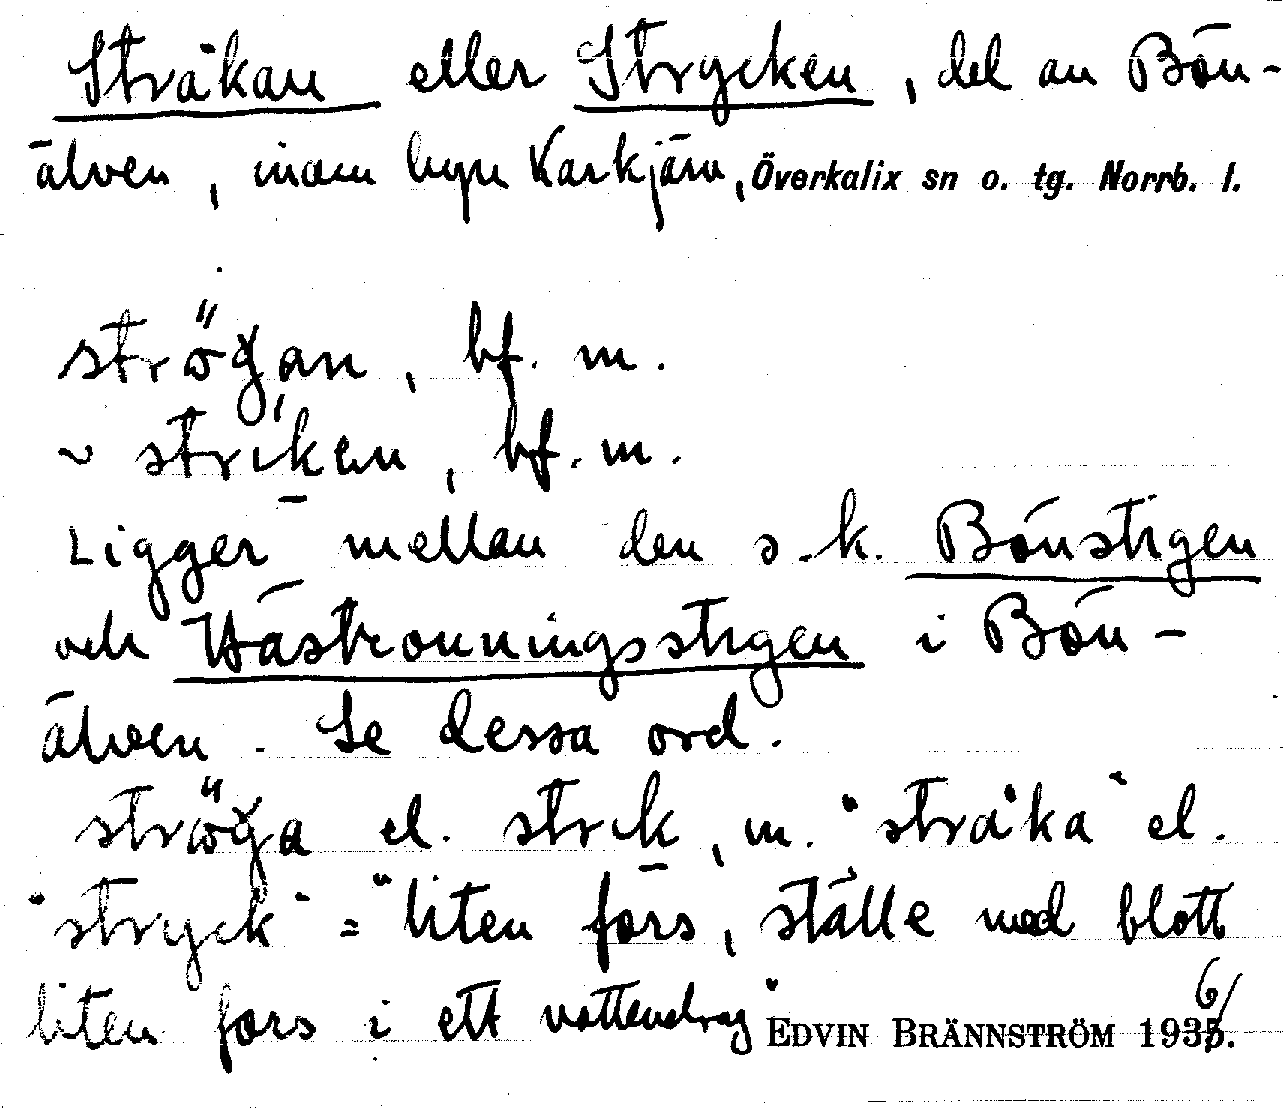 Stråkan eller Strycken, del av Bön-
älven, inom byn Karkjärv, Överkalix sn o. tg. Norrb. l.
strögan, bf. m.
~ striken, bf. m.
Ligger mellan den s.k. Bönstigen
och Västronningsstigen i Bön-
älven. Se dessa ord.
ströga el. strik, m. "stråka" el.
"stryck" = "liten fors, ställe med blott
liten fors i ett vattendrag"
EDVIN BRÄNNSTRÖM 1936.